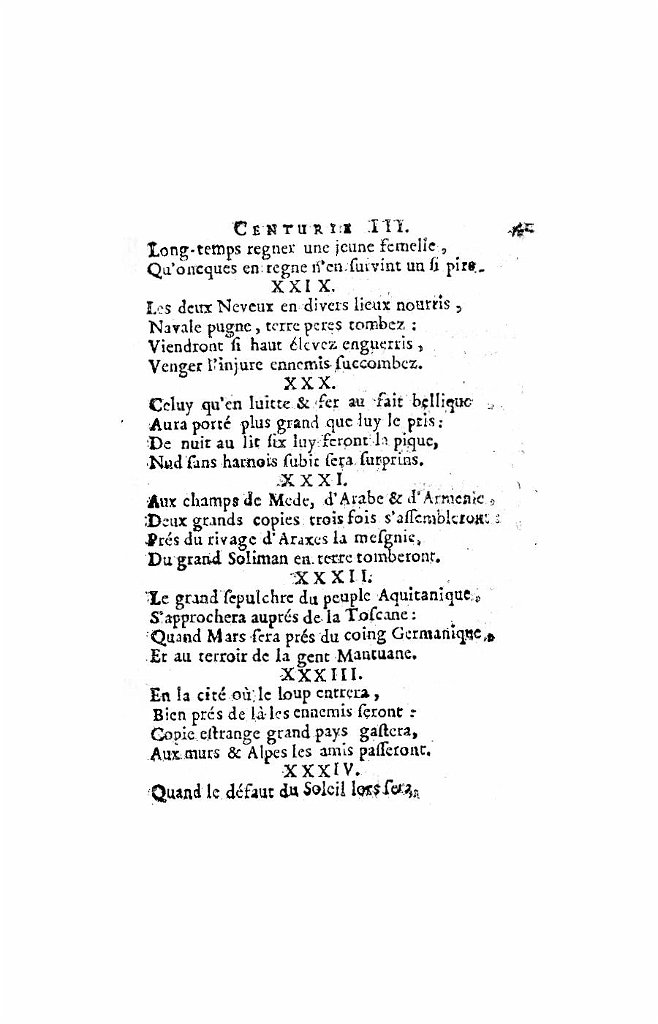 CENTURIE III.
Long-temps regner une jeune femelle,
Qu'oncques en regne n'en survint un si pire.
XXIX.
Les deux Neveux en divers lieux nourris,
Navale pugne, terre peres tombez :
Viendront ſi haut élevez enguerris,
Venger l'injure ennemis ſuccombez.
XXX.
Celuy qu'en luitte & fer au fait bellique
Aura porté plus grand que luy le pris:
De nuit au lit ſix luy feront la pique,
Nud ſans harnois ſubit ſera ſurprins.
XXXI.
Aux champs de Mede, d'Arabe & d'Armenie,
Deux grands copies trois fois s'aſſembleront :
Prés du rivage d'Araxes la meſgnie,
Du grand Soliman en terre tomberont.
XXXII.
Le grand ſepulchre du peuple Aquitanique,
S'approchera auprés de la Toſcane :
Quand Mars ſera prés du coing Germanique,
Et au terroir de la gent Mantuane.
XXXIII.
En la cité où le loup entrera,
Bien prés de là les ennemis ſeront :
Copie eſtrange grand pays gaſtera,
Aux murs & Alpes les amis paſſeront.
XXXIV.
Quand le défaut du Soleil lors ſera,